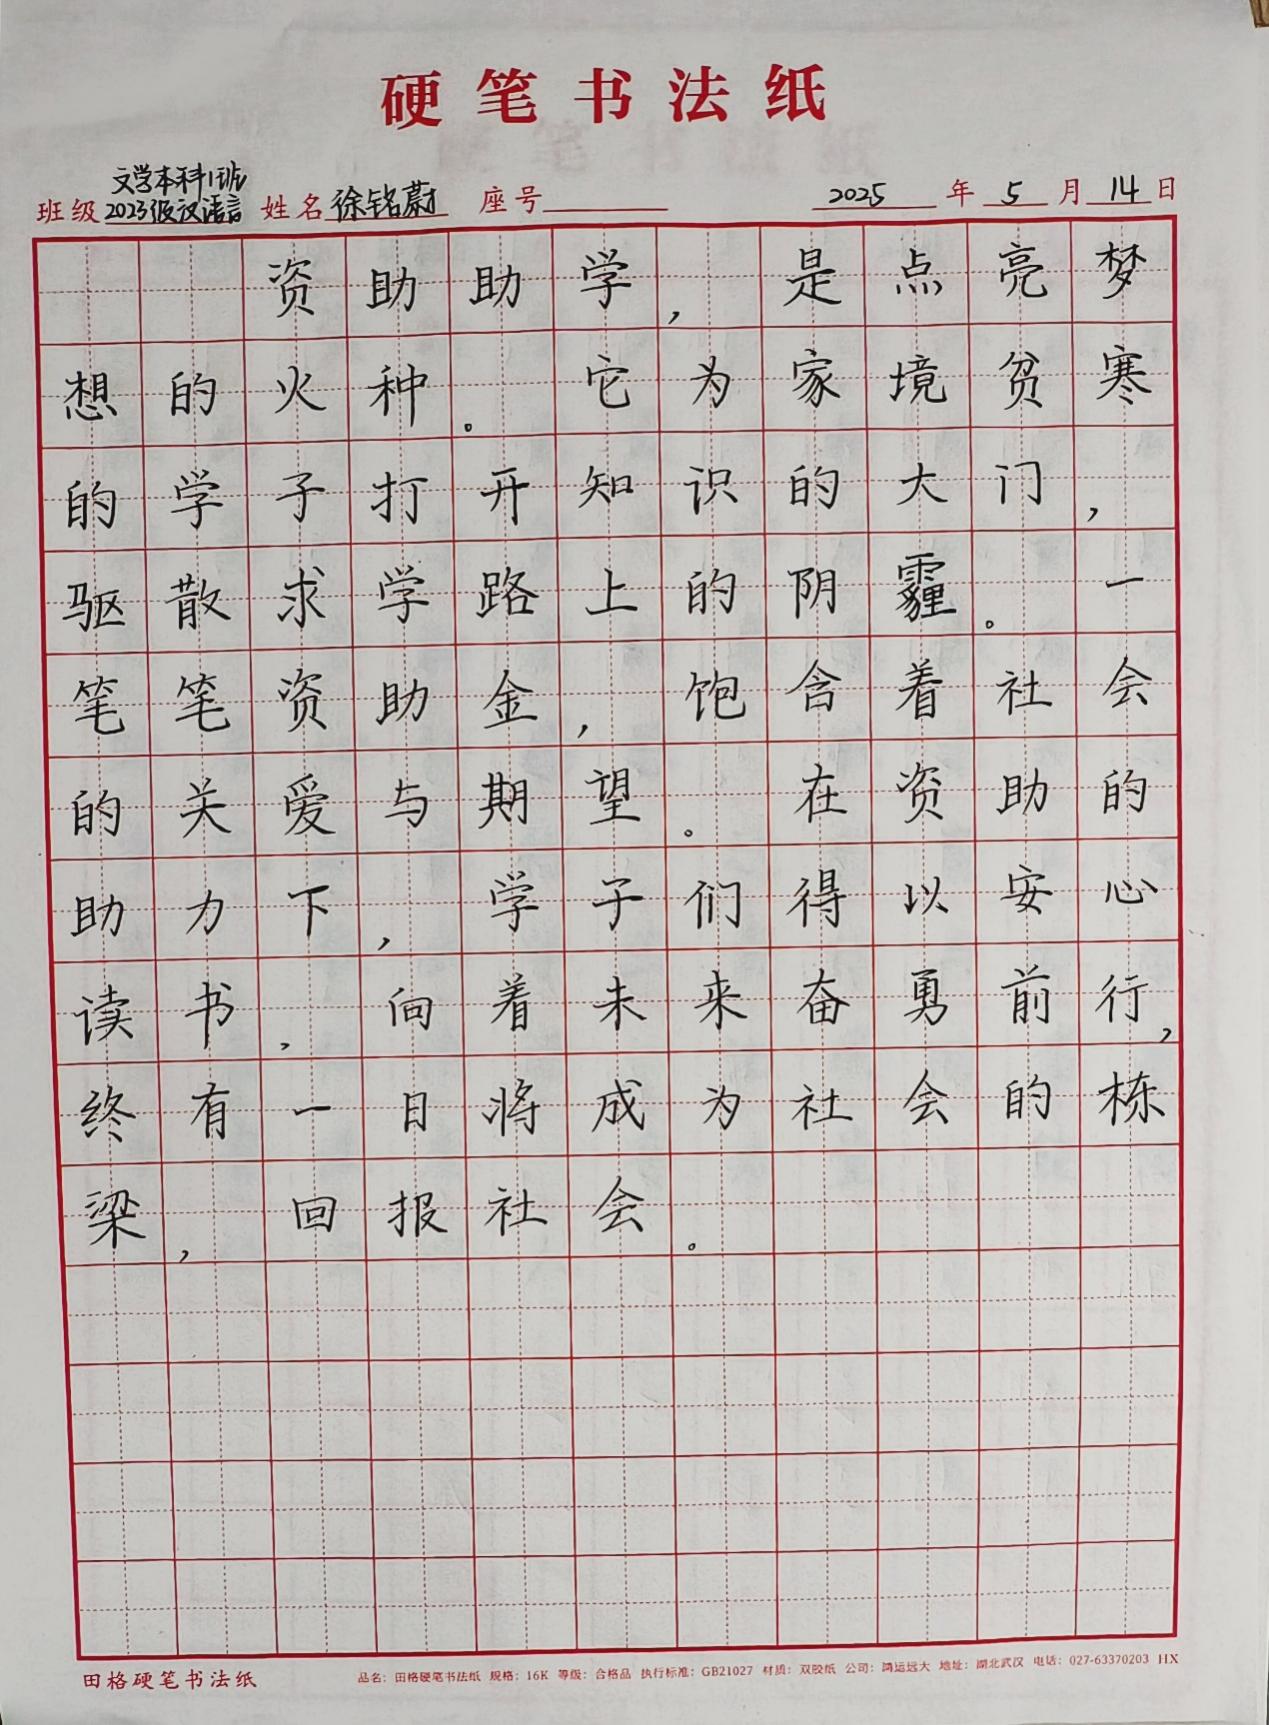 硬笔书法纸
班级 2023级汉语言文学本科1班 姓名 徐铭蔚 座号 2025 年 5 月 14 日
资助助学，是点亮梦
想的火种。它为家境贫寒
的学子打开知识的大门，
驱散求学路上的阴霾。一
笔笔资助金，饱含着社会
的关爱与期望。在资助的
助力下，学子们得以安心
读书，向着未来奋勇前行，
终有一日将成为社会的栋
梁，回报社会。
田格硬笔书法纸 品名：田格硬笔书法纸 规格：16K 等级：合格品 执行标准：GB21027 材质：双胶纸 公司：鸿运远大 地址：湖北武汉 电话：027-63370203 HX